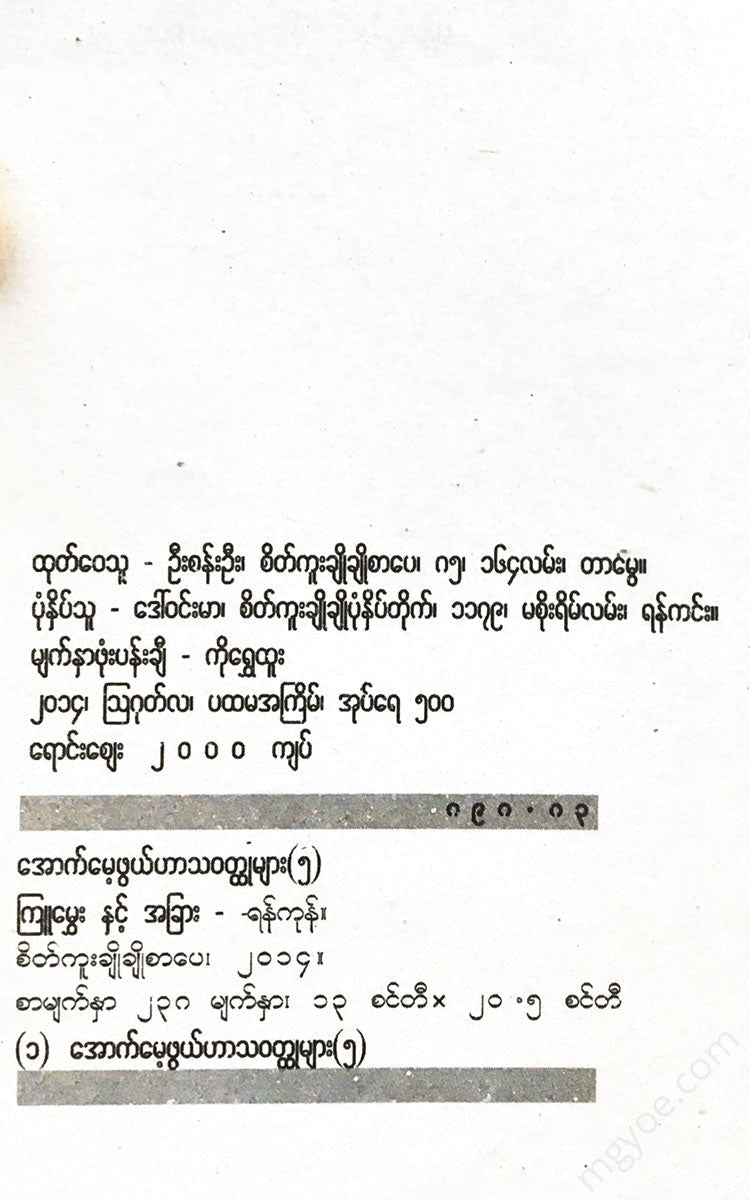 ထုတ်ဝေသူ - ဦးစန်းဦး၊ စိတ်ကူးချိုချိုစာပေ၊ ဂ၅၊ ၁၆၄လမ်း၊ တာမွေ။
ပုံနှိပ်သူ - ဒေါ်ဝင်းမာ၊ စိတ်ကူးချိုချိုပုံနှိပ်တိုက်၊ ၁၁၇၉၊ မစိုးရိမ်လမ်း၊ ရန်ကင်း။
မျက်နှာဖုံးပန်းချီ - ကိုရွှေထူး
၂၀၁၄၊ ဩဂုတ်လ၊ ပထမအကြိမ်၊ အုပ်ရေ ၅၀၀
ရောင်းဈေး ၂ ၀ ၀ ၀ ကျပ်
၈၉၈.၈၃
အောက်မေ့ဖွယ်ဟာသဝတ္ထုများ(၅)
ကြူမွှေး နှင့် အခြား - -ရန်ကုန်။
စိတ်ကူးချိုချိုစာပေ၊ ၂၀၁၄။
စာမျက်နှာ ၂၃၈ မျက်နှာ၊ ၁၃ စင်တီ× ၂၀.၅ စင်တီ
(၁) အောက်မေ့ဖွယ်ဟာသဝတ္ထုများ(၅)
mgyoe.com